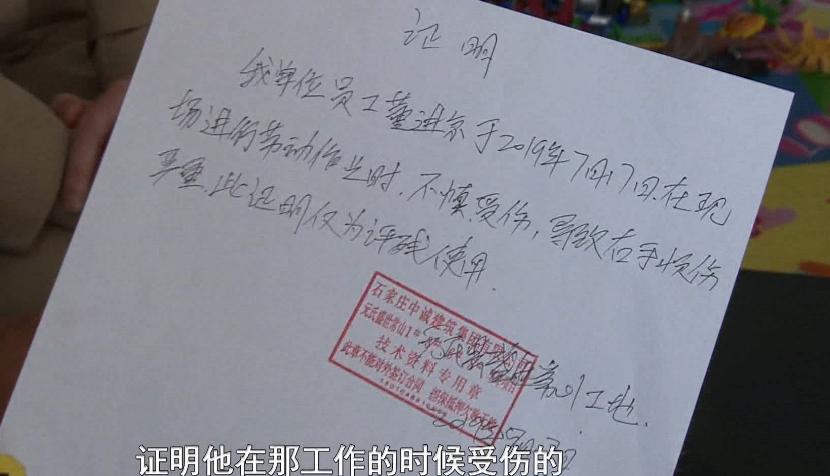 证明
我单位员工董进京于2019年7月17日.在现
场进行劳动作业时.不慎受伤,导致右手损伤
严重.此证明仅为评残使用.
石家庄中诚建筑集团有限
元氏盛世常山1
技术资料专用章
此章不能对外签订合同
工地.
证明他在那工作的时候受伤的